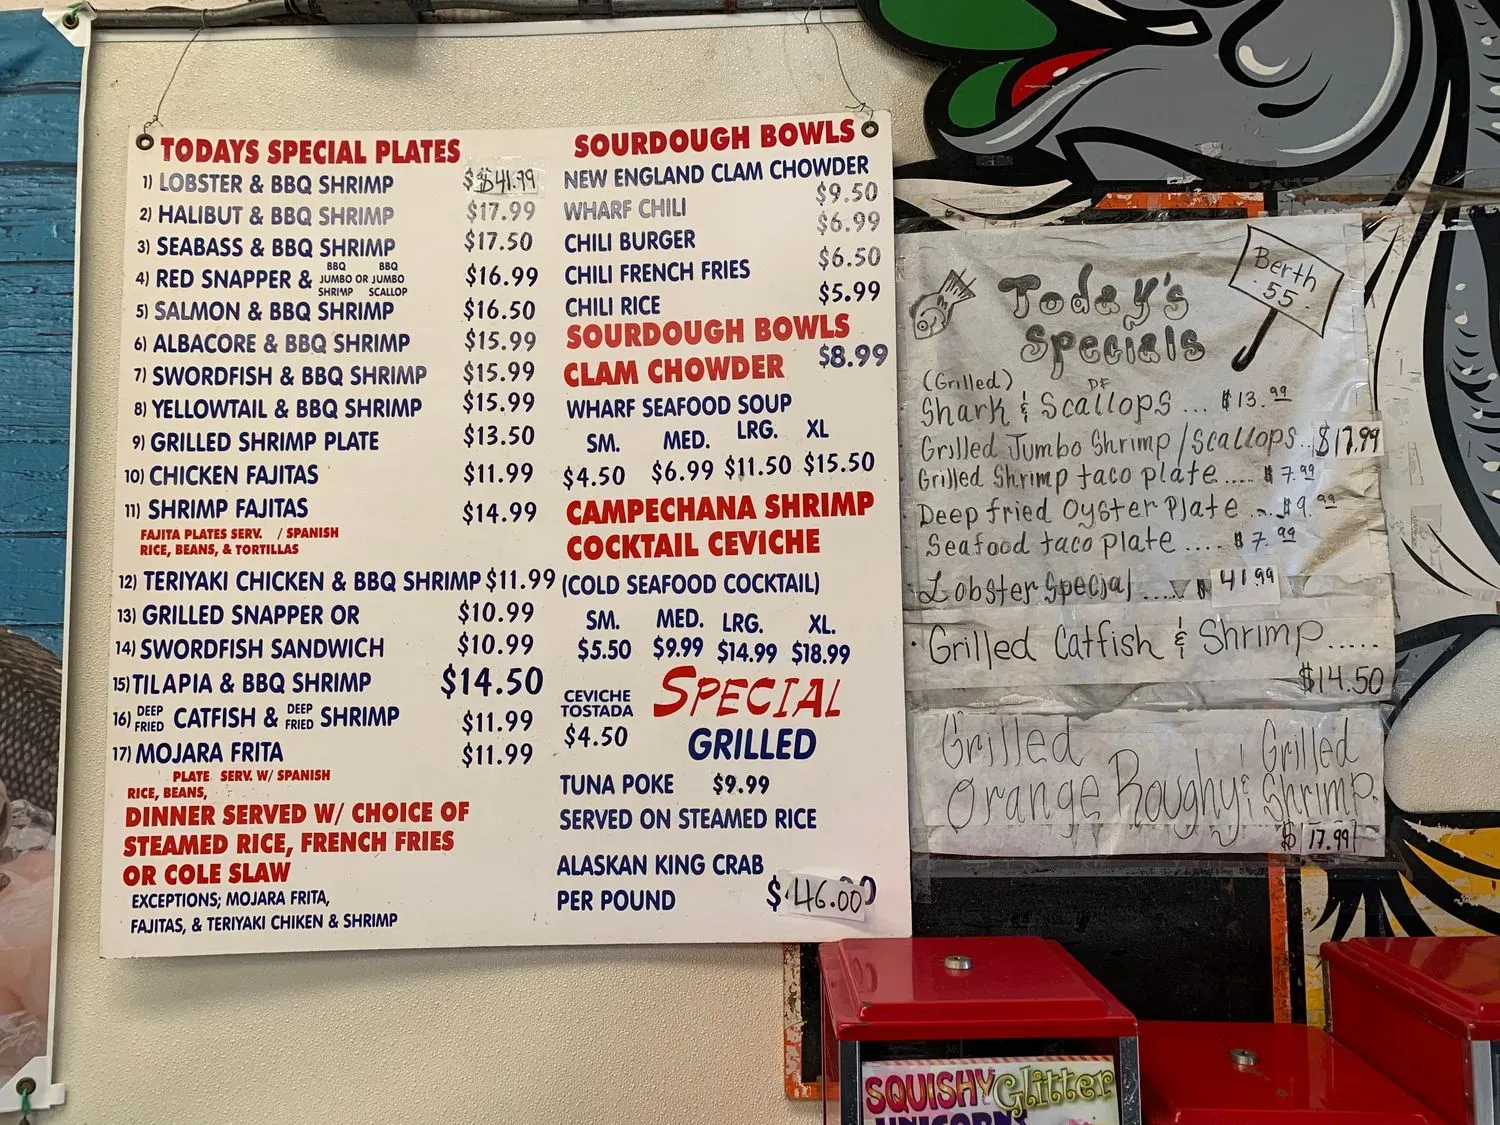 TODAYS SPECIAL PLATES
1) LOBSTER & BBQ SHRIMP $41.99
2) HALIBUT & BBQ SHRIMP $17.99
3) SEABASS & BBQ SHRIMP $17.50
4) RED SNAPPER & BBQ JUMBO SHRIMP OR BBQ JUMBO SCALLOP $16.99
5) SALMON & BBQ SHRIMP $16.50
6) ALBACORE & BBQ SHRIMP $15.99
7) SWORDFISH & BBQ SHRIMP $15.99
8) YELLOWTAIL & BBQ SHRIMP $15.99
9) GRILLED SHRIMP PLATE $13.50
10) CHICKEN FAJITAS $11.99
11) SHRIMP FAJITAS $14.99
FAJITA PLATES SERV. / SPANISH
RICE, BEANS, & TORTILLAS
12) TERIYAKI CHICKEN & BBQ SHRIMP $11.99
13) GRILLED SNAPPER OR $10.99
14) SWORDFISH SANDWICH $10.99
15) TILAPIA & BBQ SHRIMP $14.50
16) DEEP FRIED CATFISH & DEEP FRIED SHRIMP $11.99
17) MOJARA FRITA $11.99
PLATE SERV. W/ SPANISH
RICE, BEANS,
DINNER SERVED W/ CHOICE OF
STEAMED RICE, FRENCH FRIES
OR COLE SLAW
EXCEPTIONS; MOJARA FRITA,
FAJITAS, & TERIYAKI CHIKEN & SHRIMP
SOURDOUGH BOWLS
NEW ENGLAND CLAM CHOWDER
$9.50
WHARF CHILI
$6.99
CHILI BURGER
$6.50
CHILI FRENCH FRIES
$5.99
CHILI RICE
SOURDOUGH BOWLS
CLAM CHOWDER $8.99
WHARF SEAFOOD SOUP
SM. MED. LRG. XL
$4.50 $6.99 $11.50 $15.50
CAMPECHANA SHRIMP
COCKTAIL CEVICHE
(COLD SEAFOOD COCKTAIL)
SM. MED. LRG. XL.
$5.50 $9.99 $14.99 $18.99
CEVICHE
TOSTADA
$4.50
SPECIAL
GRILLED
TUNA POKE $9.99
SERVED ON STEAMED RICE
ALASKAN KING CRAB
PER POUND $46.00
Berth
55
Today's
Specials
(Grilled) DF
Shark & Scallops ... $13.99
Grilled Jumbo Shrimp/Scallops.. $17.99
Grilled Shrimp taco plate.... $7.99
Deep fried Oyster Plate ... $9.99
Seafood taco plate .... $7.99
Lobster Special ..... 41.99
Grilled Catfish & Shrimp.....
$14.50
Grilled
Orange Roughy & Grilled
Shrimp.
$17.99
SQUISHY Glitter
UNICORNS